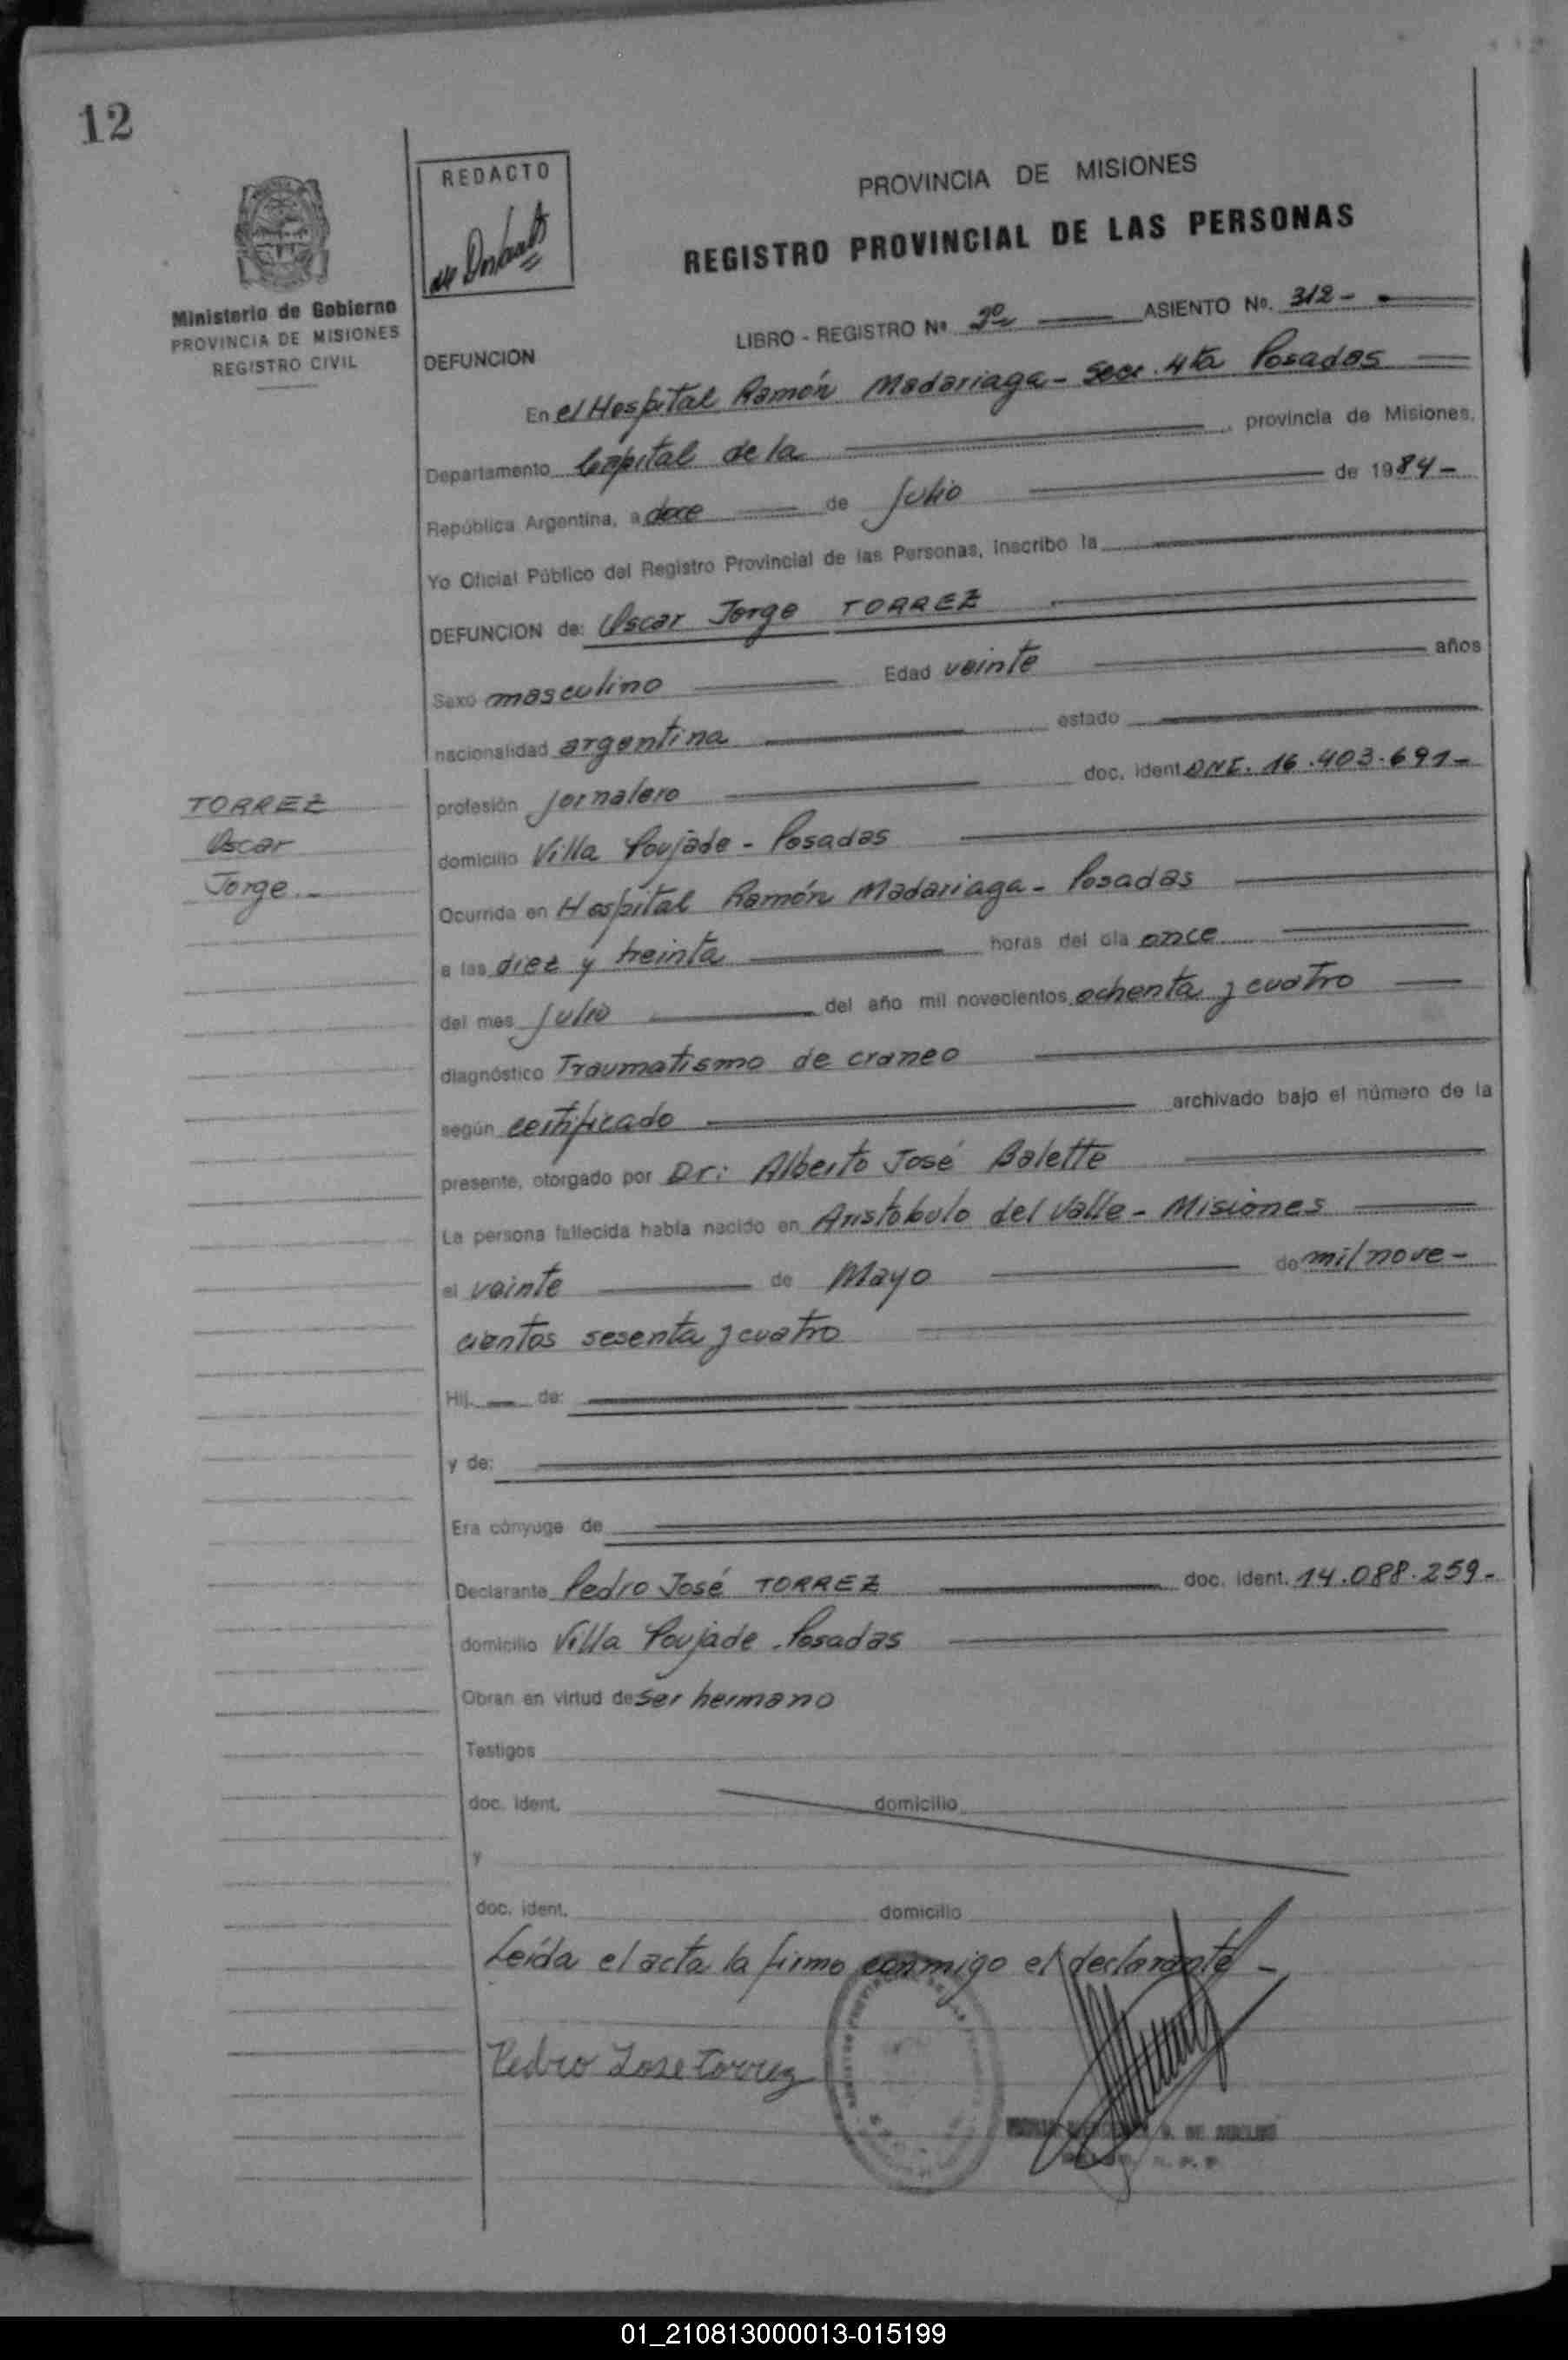 12
REDACTO
PROVINCIA DE MISIONES
REGISTRO PROVINCIAL DE LAS PERSONAS
Ministerio de Gobierno
PROVINCIA DE MISIONES
REGISTRO CIVIL
LIBRO - REGISTRO Nº 2º ASIENTO Nº. 312-
DEFUNCION
En el Hospital Ramón Madariaga - Secc. 4ta Posadas
Departamento Capital de la provincia de Misiones,
República Argentina, a doce de Julio de 1984-
Yo Oficial Público del Registro Provincial de las Personas, inscribo la
DEFUNCION de: Oscar Jorge TORREZ
Sexo masculino Edad veinte años
nacionalidad argentina estado
profesión Jornalero doc. ident. DNI. 16.403.691-
TORREZ
Oscar
Jorge.-
domicilio Villa Poujade - Posadas
Ocurrida en Hospital Ramón Madariaga - Posadas
a las diez y treinta horas del día once
del mes Julio del año mil novecientos ochenta y cuatro
diagnóstico Traumatismo de craneo
según certificado archivado bajo el número de la
presente, otorgado por Dr: Alberto José Balette
La persona fallecida había nacido en Aristobulo del Valle - Misiones
el veinte de Mayo de mil nove-
cientos sesenta y cuatro
Hij. de:
y de:
Era cónyuge de
Declarante Pedro José TORREZ doc. ident. 14.088.259-
domicilio Villa Poujade - Posadas
Obran en virtud de ser hermano
Testigos
doc. ident. domicilio
y
doc. ident. domicilio
Leída el acta la firmo conmigo el declarante -
Pedro Jose Torrez
01_210813000013-015199